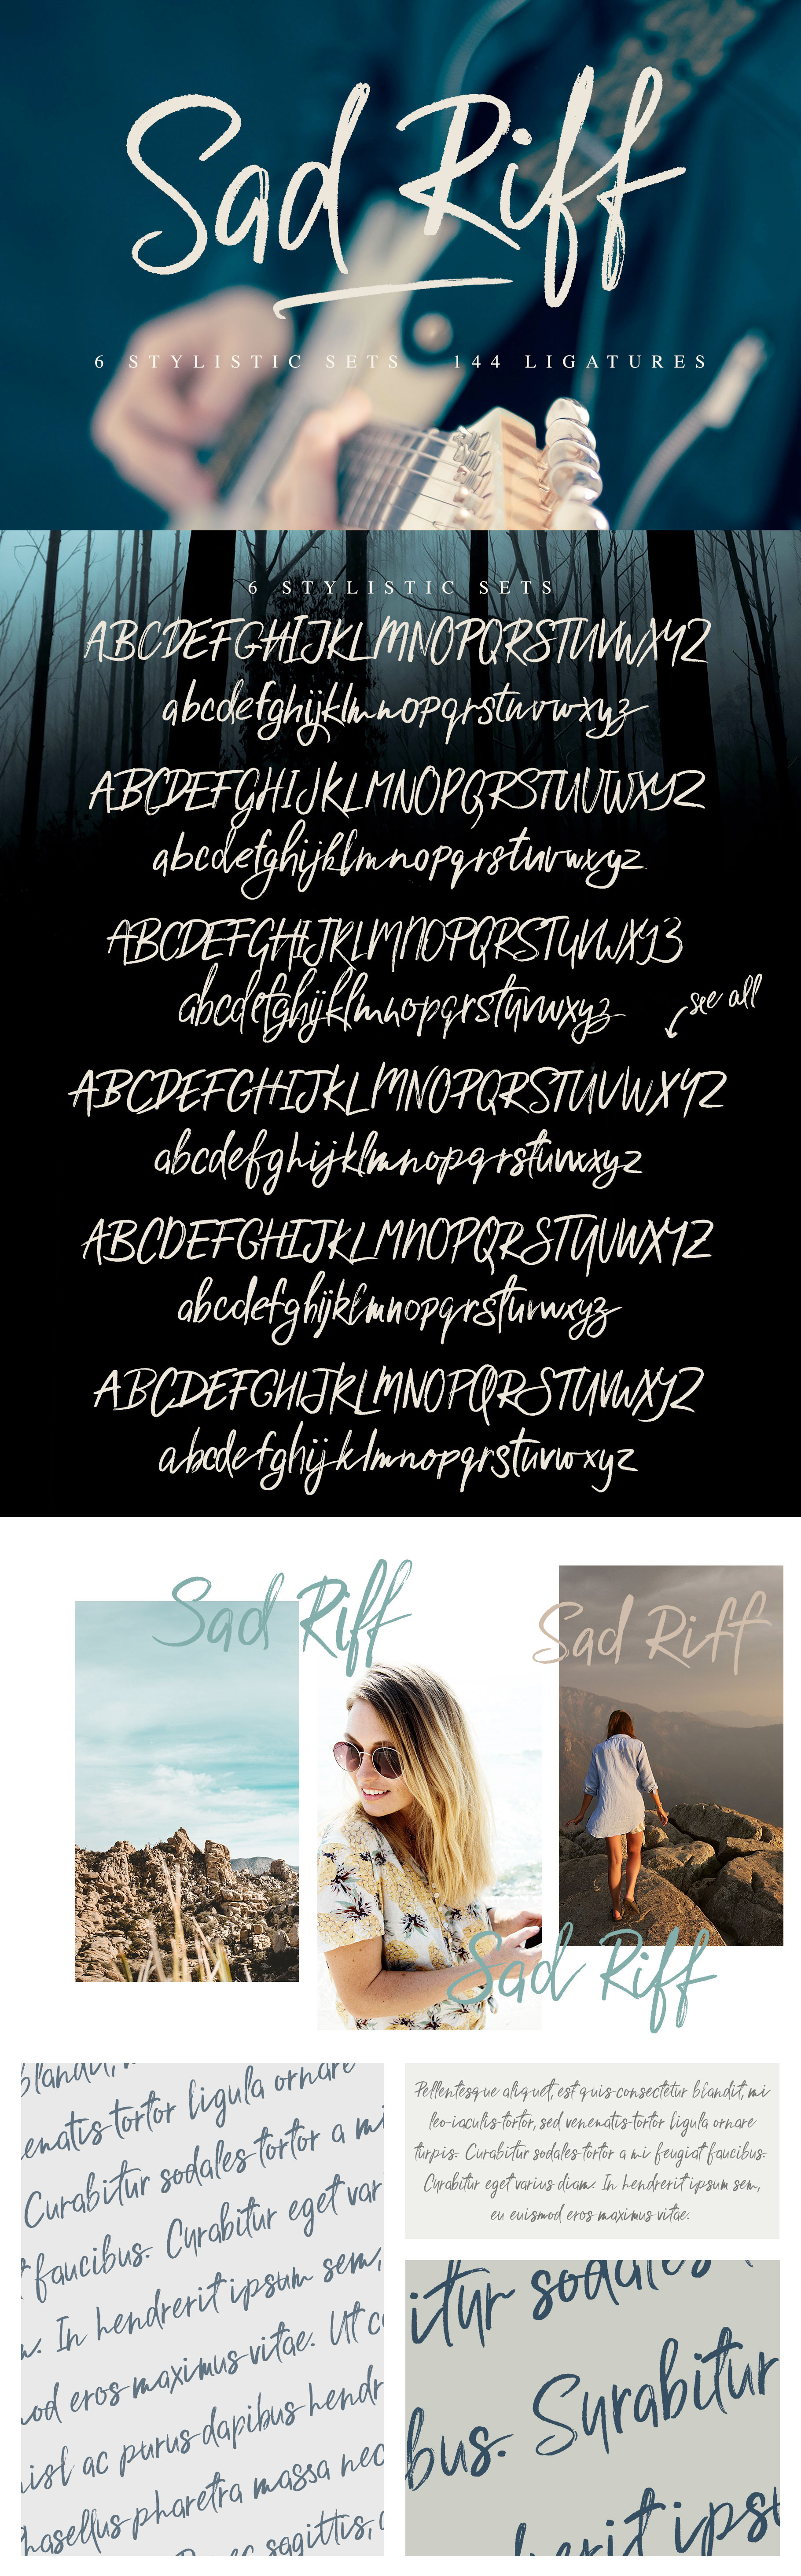 Sad Riff
6 STYLISTIC SETS 144 LIGATURES
6 STYLISTIC SETS
ABCDEFGHIJKLMNOPQRSTUVWXYZ
abcdefghijklmnopqrstuvwxyz
ABCDEFGHIJKLMNOPQRSTUVWXYZ
abcdefghijklmnopqrstuvwxyz
ABCDEFGHIJKLMNOPQRSTUVWXYZ
abcdefghijklmnopqrstuvwxyz
see all
ABCDEFGHIJKLMNOPQRSTUVWXYZ
abcdefghijklmnopqrstuvwxyz
ABCDEFGHIJKLMNOPQRSTUVWXYZ
abcdefghijklmnopqrstuvwxyz
ABCDEFGHIJKLMNOPQRSTUVWXYZ
abcdefghijklmnopqrstuvwxyz
Sad Riff
Sad Riff
Sad Riff
enatis tortor ligula ornare
Curabitur sodales tortor a mi
faucibus. Curabitur eget var
. In hendrerit ipsum sem,
od eros maximus vitae. Ut c
nisl ac purus dapibus hendr
hasellus pharetra massa nec
sagittis,
Pellentesque aliquet, est quis consectetur blandit, mi
leo iaculis tortor, sed venenatis tortor ligula ornare
turpis. Curabitur sodales tortor a mi feugiat faucibus.
Curabitur eget varius diam. In hendrerit ipsum sem,
eu euismod eros maximus vitae.
itur sodales
bus. Surabitur
herit ipsu